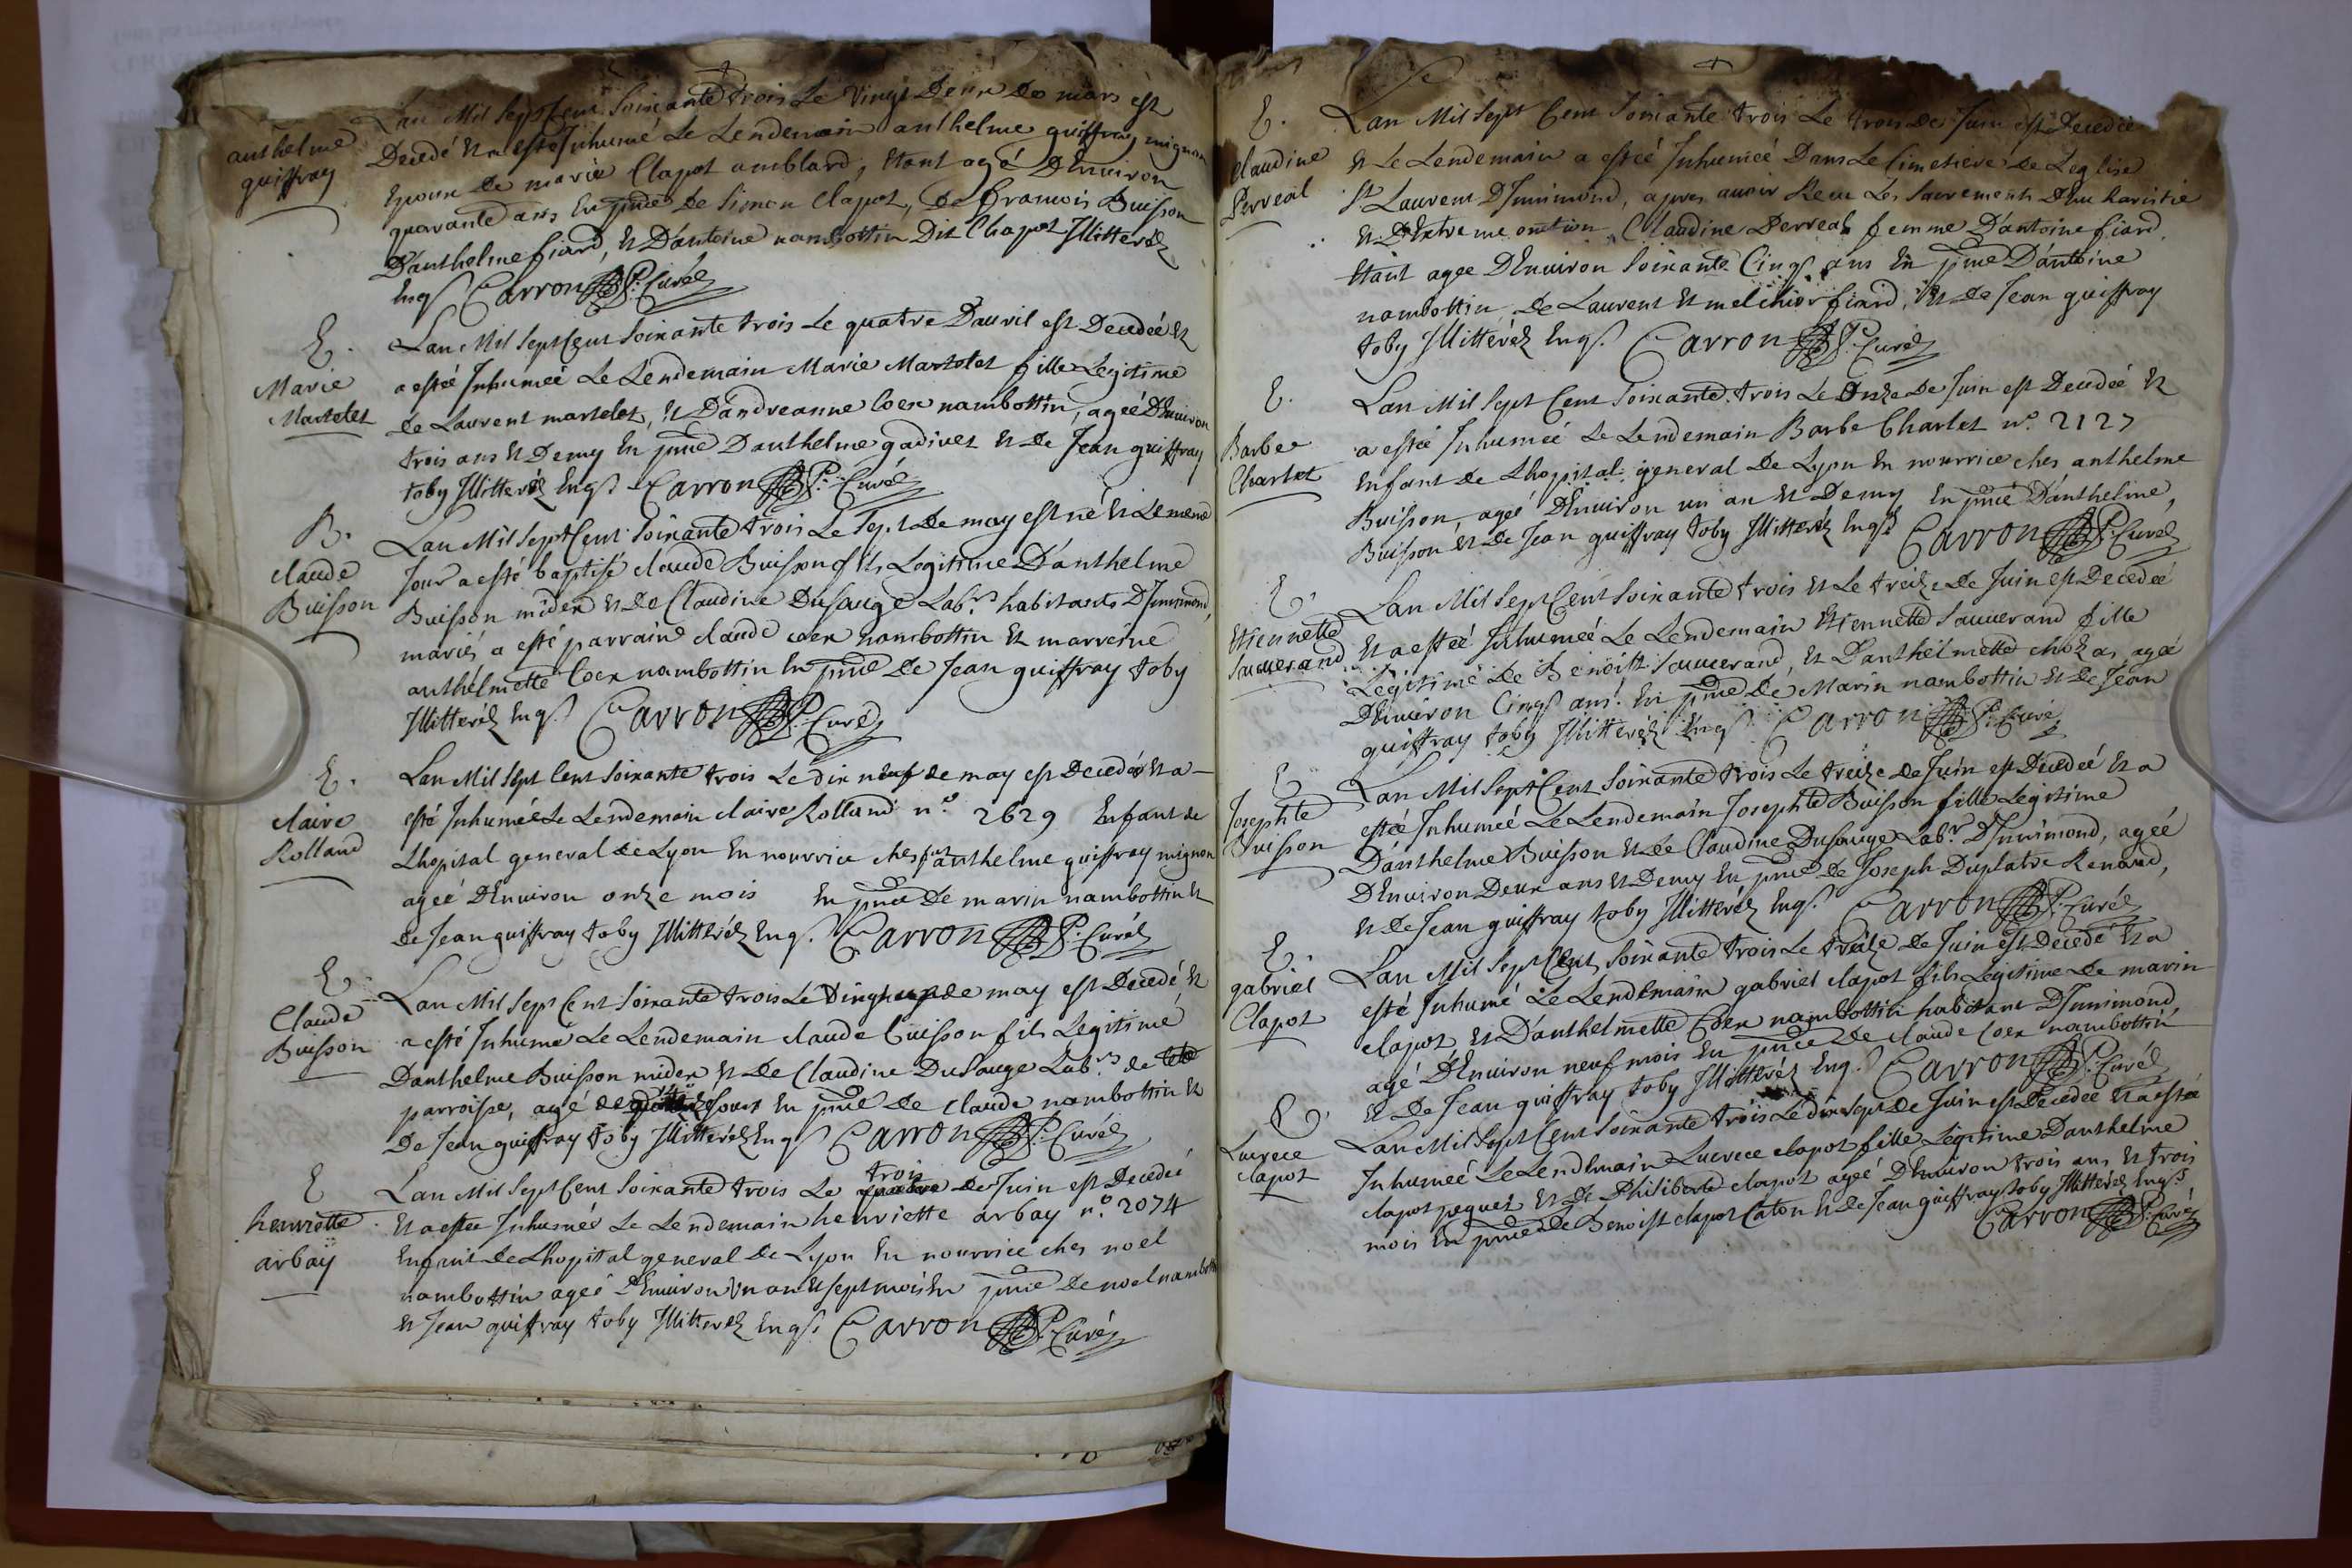 anthelme
guiffray
Lan Mil Sept Cent Soixante trois Le Vingt Deux De mars est
Decedé Et a esté Inhumé Le Lendemain anthelme guiffray mignon
Epoux De marie Clapot amblard, Etant agé DEnviron
quarante ans En pnce De Simon Clapot, De francois Buisson
Danthelme fiard, Et Dantoine nambottin Dit Chapot Illitteréz
Enqs Carron P. Curéz
E.
Marie
Martelet
Lan Mil Sept Cent Soixante trois Le quatre Dauril est Decedeé Et
a esteé Inhumeé Le Lendemain Marie Martelet fille Legitime
de Laurent martelet, Et Dandreanne Coex nambottin, ageé DEnviron
trois ans Et Demy En pnce Danthelme gadivet Et De Jean guiffray
toby Illitteréz Enqs Carron P. Curéz
B.
claude
Buisson
Lan Mil Sept Cent Soixante trois Le Sept De may est né Et Le meme
Jour a esté baptisé claude Buisson fils Legitime Danthelme
Buisson midex Et De Claudine Dusauge Lab.rs habitants DInnimond,
mariés a esté parrain claude coex nambottin Et marreine
anthelmette Coex nambottin En pnce De Jean guiffray toby
Illitteréz Enqs Carron P. Curéz
E.
claire
Rolland
Lan Mil Sept Cent Soixante trois Le dix neuf de may est Decedeé Et a
esté Inhumeé Le Lendemain claire Rolland n.o 2629 Enfant de
Lhopital general de Lyon En nourrice ches anthelme guiffray mignon
ageé DEnviron onze mois En pnce De marin nambottin Et
de Jean guiffray toby Illitteréz Enqs. Carron P. Curéz
E
Claude
Buisson
Lan Mil Sept Cent Soixante trois Le Vingt de may est Decedé Et
a esté Inhumé Le Lendemain claude Buisson fils Legitime
Danthelme Buisson midex Et De Claudine Dusauge Lab.rs de
parroisse, agé de Jours En pnce De claude nambottin Et
De Jean guiffray toby Illitteréz Enqs Carron P. Curéz
E
henriette
arbay
trois
Lan Mil Sept Cent Soixante trois Le quatre de Juin est Decedeé
Et a esteé Inhumeé Le Lendemain henriette arbay n.o 2074
Enfant de Lhopital general De Lyon En nourrice ches noel
nambottin ageé DEnviron Un an Et Sept mois En pnce De noel nambottin
Et Jean guiffray toby Illitteréz Enqs. Carron P. Curéz
E.
Claudine
Perreal
Lan Mil Sept Cent Soixante trois Le trois De Juin est Decedeé
Et Le Lendemain a esteé Inhumeé Dans Le Cimetiere de Leglise
St Laurent DInnimond, apres auoir Receu Les Sacrements Deucharistie
Et DExtreme onction Claudine Perreal femme Dantoine fiard,
Etant agee DEnviron Soixante Cinq ans En pnce Dantoine
nambottin, De Laurent Et melchior fiard, Et De Jean guiffray
toby Illitteréz Enqs. Carron P. Curéz
E.
Barbe
Charlet
Lan Mil Sept Cent Soixante trois Le Onze De Juin est Decedeé Et
a esteé Inhumeé Le Lendemain Barbe Charlet n.o 2127
Enfant de Lhopital general De Lyon En nourrice ches anthelme
Buisson, ageé DEnviron un an Et Demy En pnce Danthelme
Buisson Et De Jean guiffray toby Illitteréz Enqs Carron P. Curéz
E.
Etiennette
Sauuerand
Lan Mil Sept Cent Soixante trois Et Le treize De Juin est Decedeé
Et a esteé Inhumeé Le Lendemain Etiennette Sauuerand fille
Legitime De Benoitt Sauuerand, Et Danthelmette chozas ageé
DEnviron Cinq ans. En pnce De Marin nambottin Et De Jean
guiffray toby Illitteréz Enqs Carron P. Curéz
E
Josephte
Buisson
Lan Mil Sept Cent Soixante trois Le treize de Juin est Decedeé Et a
esteé Inhumeé Le Lendemain Josephte Buisson fille Legitime
Danthelme Buisson Et de Claudine Dusauge Lab.rs DInnimond, ageé
DEnviron Deux ans Et Demy En pnce de Joseph Duplatre Renaud,
Et de Jean guiffray toby Illitteréz Enqs. Carron P. Curéz
E.
gabriel
Clapot
Lan Mil Sept Cent Soixante trois Le treize de Juin est Decedé Et a
esté Inhumé Le Lendemain gabriel clapot fils Legitime De marin
clapot Et Danthelmette Coex nambottin habitant DInnimond
agé DEnviron neuf mois En pnce De claude Coex nambottin
Et De Jean guiffray toby Illitteréz Enqs. Carron P. Curéz
E.
Lucrece
clapot
Lan Mil Sept Cent Soixante trois Le dix Sept de Juin est Decedeé Et a esteé
Inhumeé Le Lendemain Lucrece clapot fille Legitime Danthelme
clapot peguet Et De Philiberte clapot ageé DEnviron trois ans Et trois
mois En pnce De Benoist clapot Caton Et de Jean guiffray toby Illitteréz Enqs
Carron P. Curéz